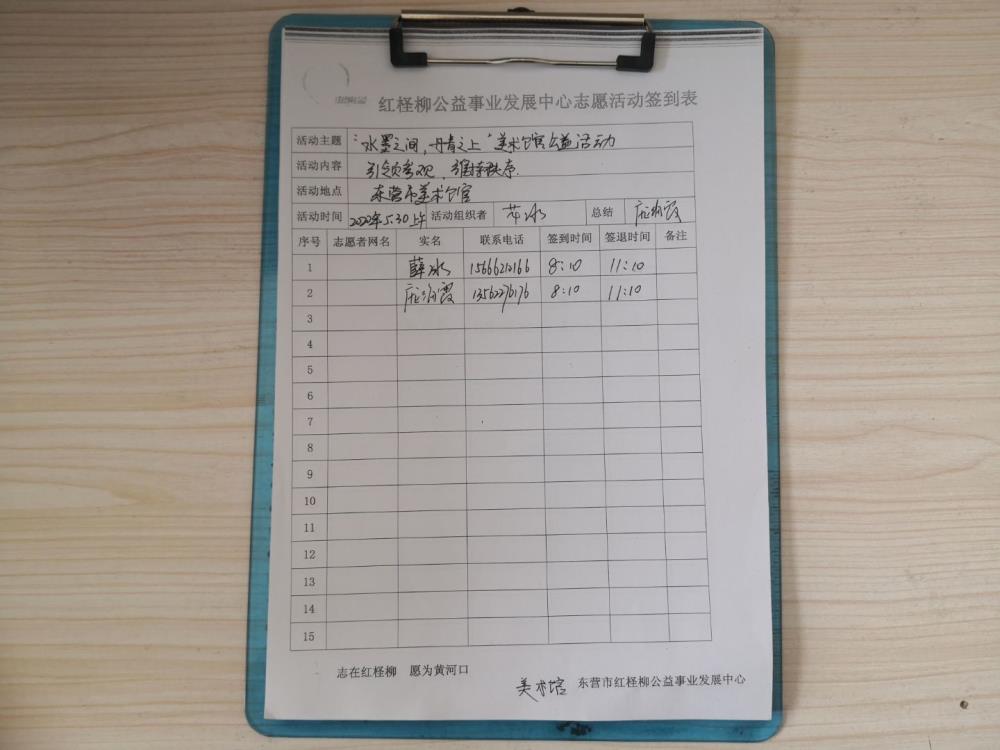 红柽柳公益事业发展中心志愿活动签到表
活动主题 "水墨之间,丹青之上"美术馆公益活动
活动内容 引领参观,维持秩序.
活动地点 东营市美术馆
活动时间 2022年5.30上午 活动组织者 冰 总结 霞
序号 志愿者网名 实名 联系电话 签到时间 签退时间 备注
1 薛冰 15666212166 8:10 11:10
2 霞 13562276176 8:10 11:10
3
4
5
6
7
8
9
10
11
12
13
14
15
志在红柽柳 愿为黄河口
美术馆 东营市红柽柳公益事业发展中心